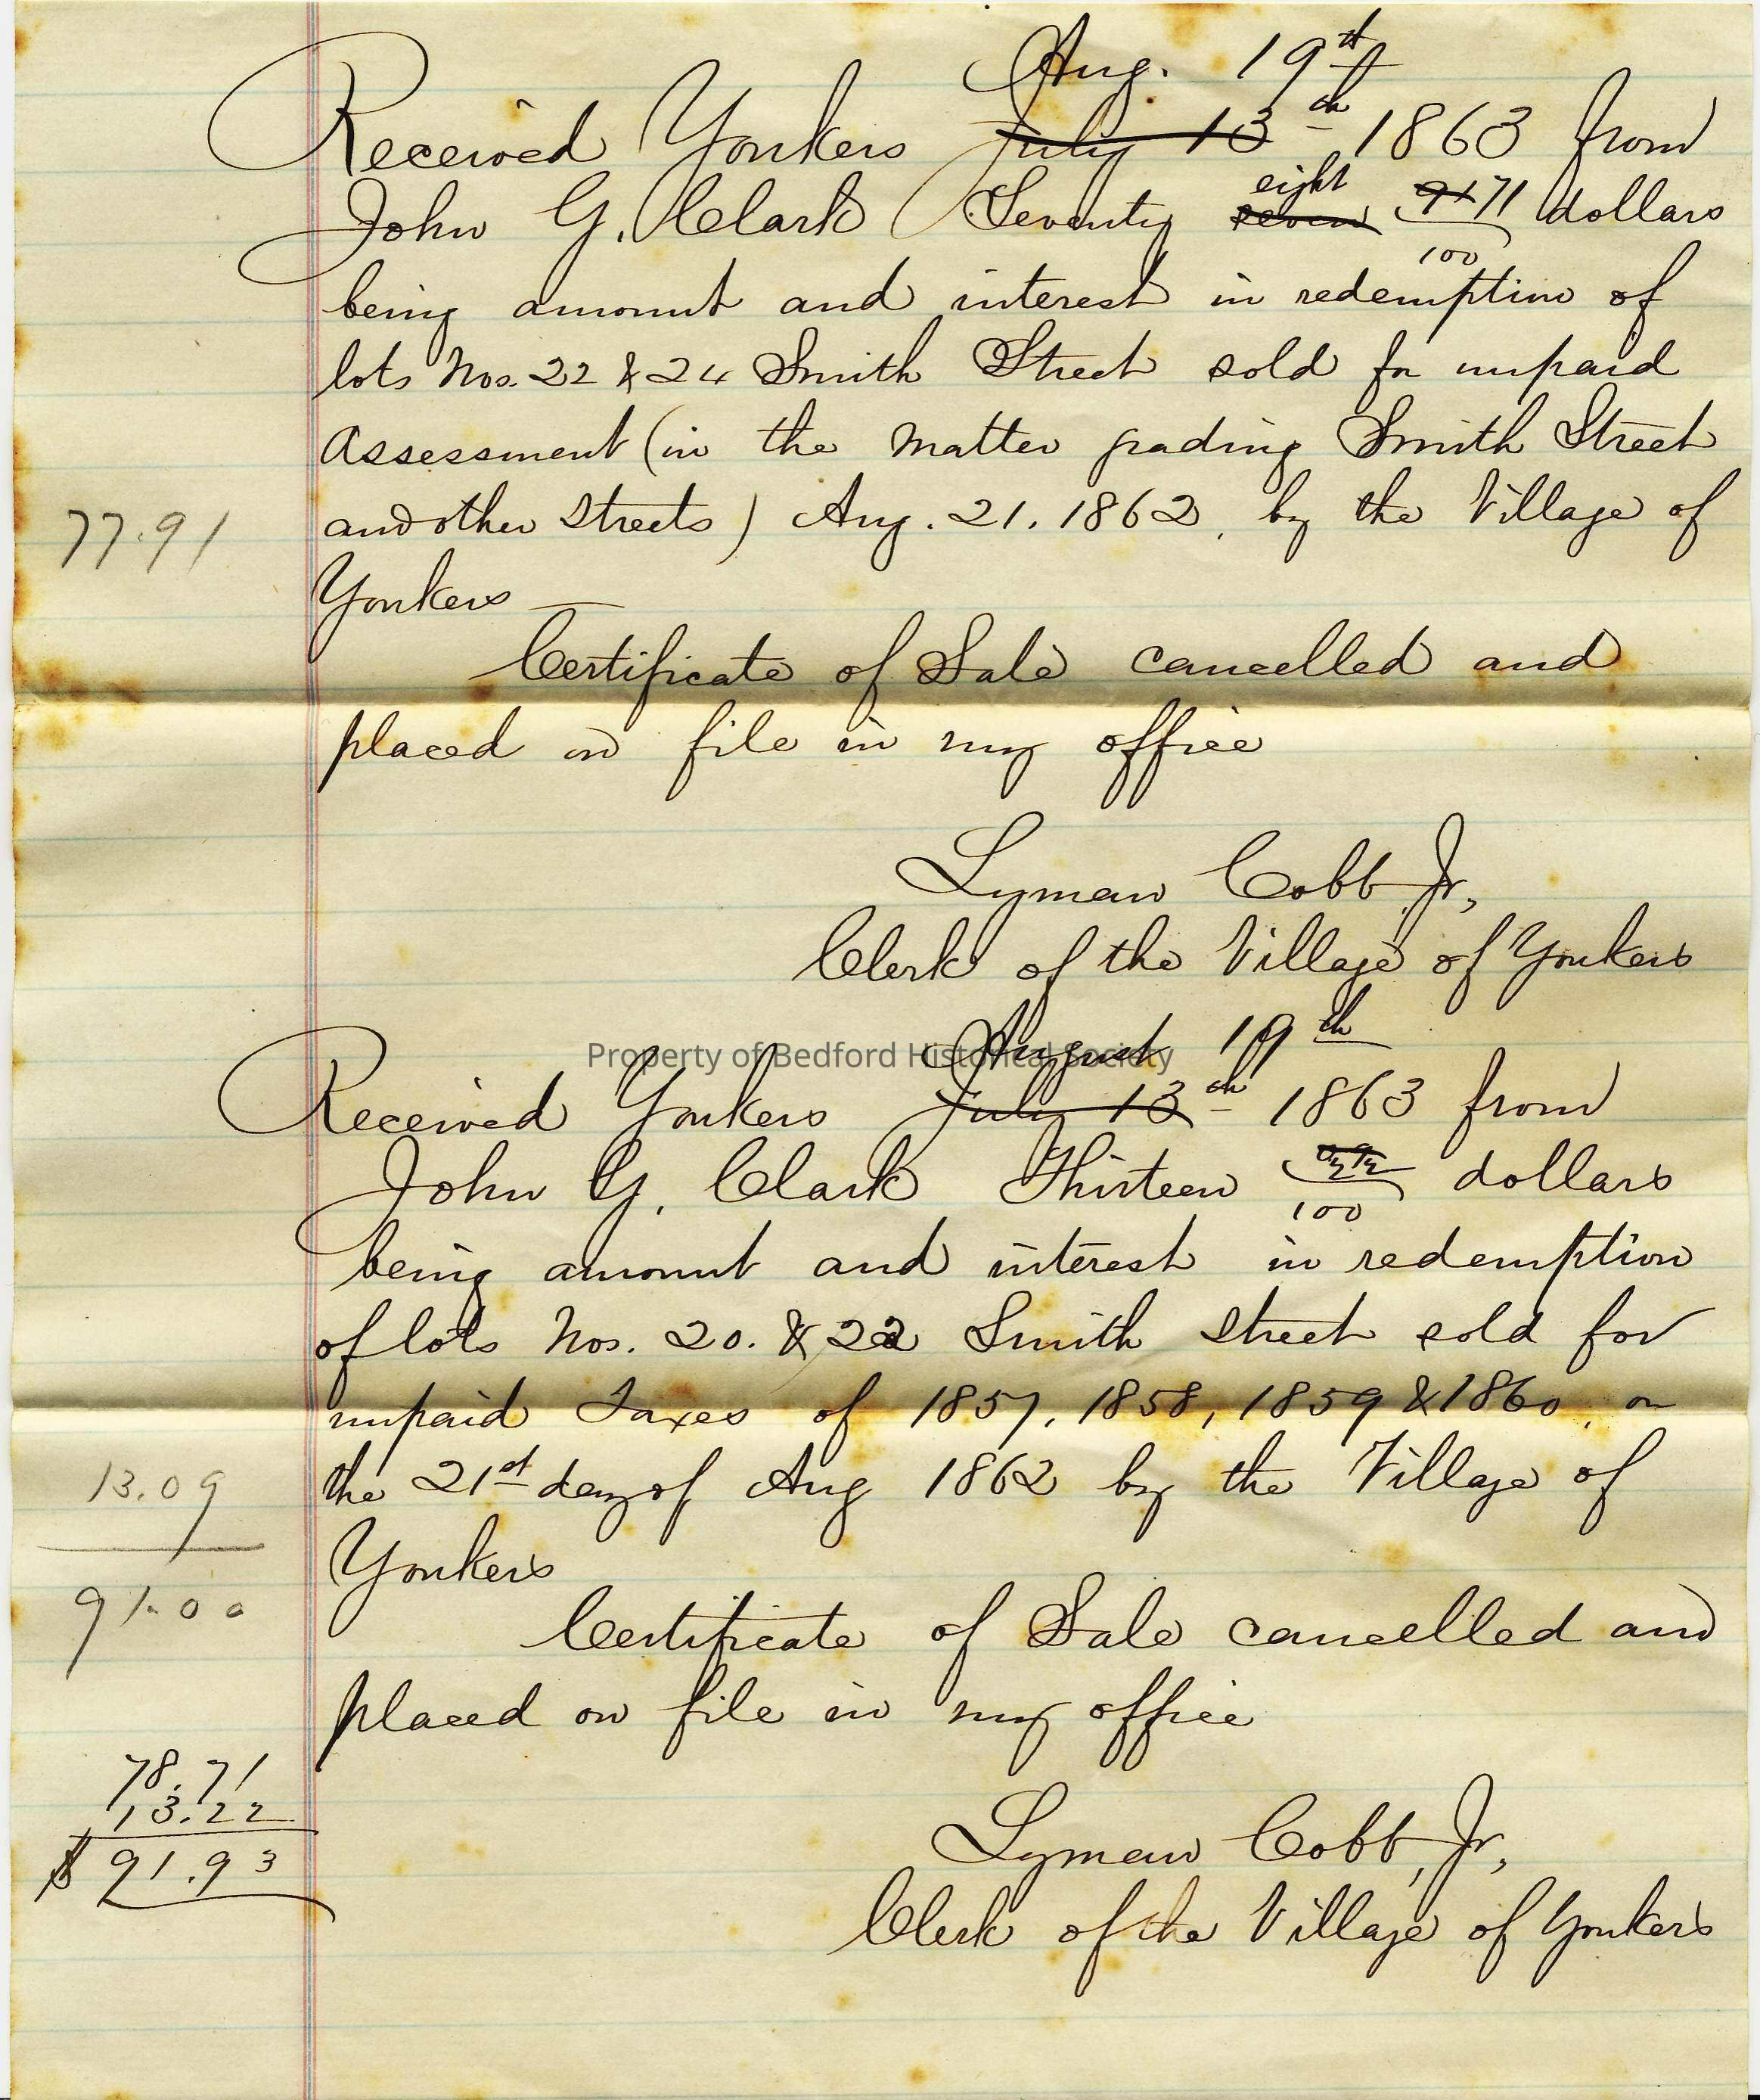 Aug. 19th
Received Yonkers July 13th 1863 from
eight
John G. Clark Seventy seven 91 71/100 dollars
being amount and interest in redemption of
lots Nos. 22 & 24 Smith Street sold for unpaid
Assessment (in the matter grading Smith Street
and other Streets) Aug. 21. 1862, by the Village of
77.91
Yonkers —
Certificate of Sale cancelled and
placed on file in my office
Lyman Cobb, Jr,
Clerk of the Village of Yonkers
August 19th
Property of Bedford Historical Society
Received Yonkers July 13th 1863 from
John G. Clark Thirteen /100 dollars
being amount and interest in redemption
of lots Nos. 20. & 22 Smith street sold for
unpaid Taxes of 1857, 1858, 1859 & 1860, on
the 21st day of Aug 1862 by the Village of
13.09
Yonkers
91.00
Certificate of Sale cancelled and
placed on file in my office
78.71
13.22
$ 91.93
Lyman Cobb, Jr,
Clerk of the Village of Yonkers